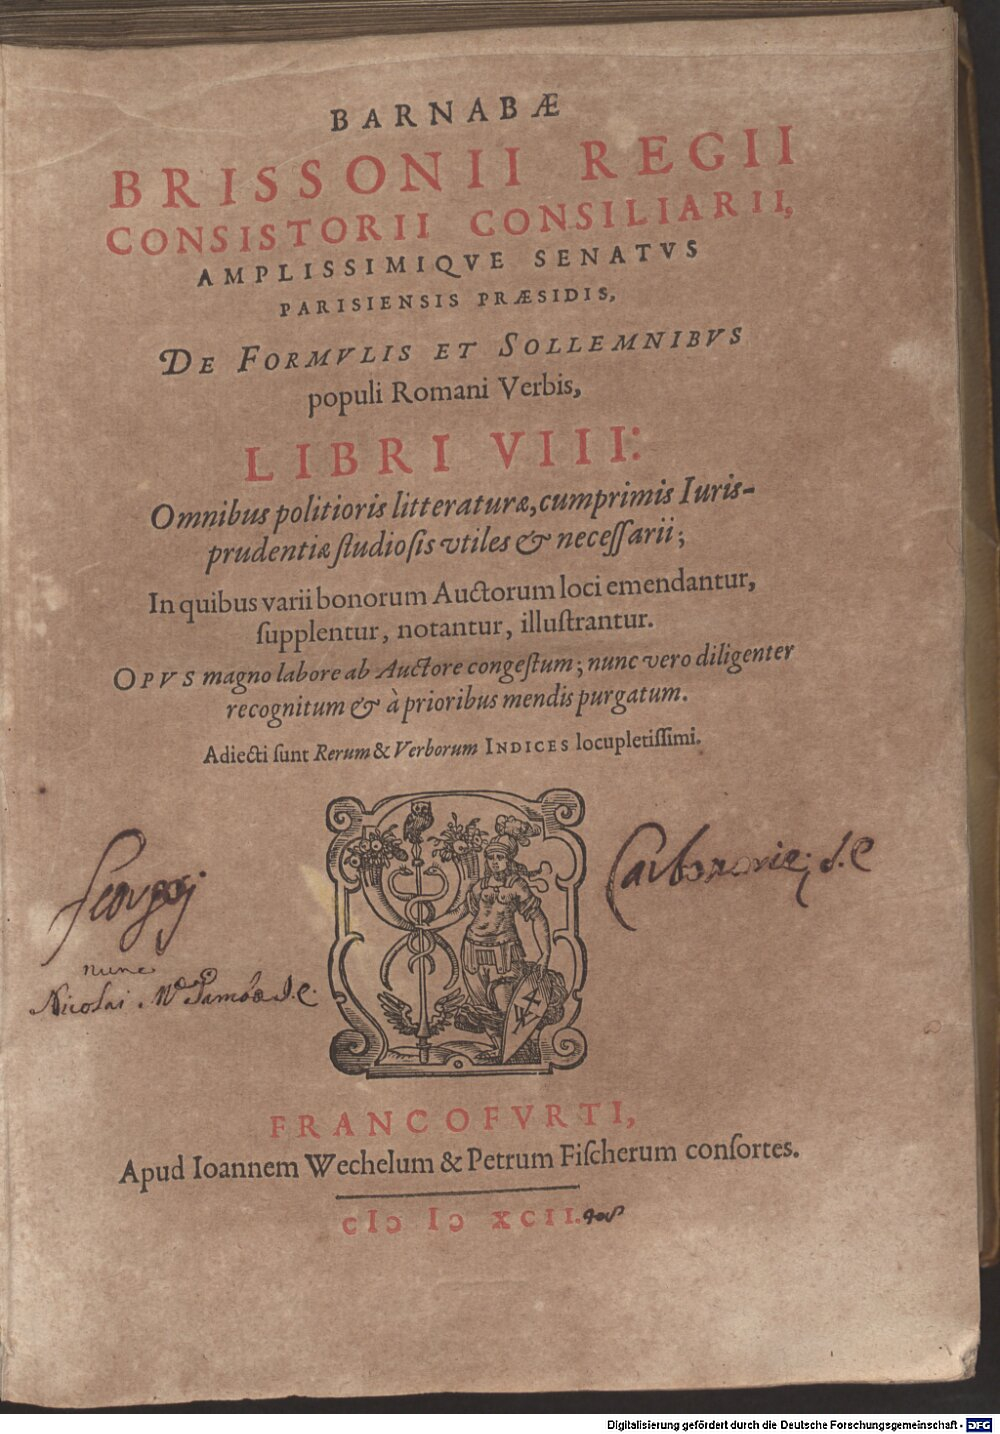 BARNABÆ
BRISSONII REGII
CONSISTORII CONSILIARII,
AMPLISSIMIQVE SENATVS
PARISIENSIS PRÆSIDIS,
DE FORMVLIS ET SOLLEMNIBVS
populi Romani Verbis,
LIBRI VIII:
Omnibus politioris litteraturæ, cumprimis Iuris-
prudentiæ ſtudioſis vtiles & neceſſarii;
In quibus varii bonorum Auctorum loci emendantur,
ſupplentur, notantur, illuſtrantur.
OPVS magno labore ab Auctore congeſtum; nunc vero diligenter
recognitum & à prioribus mendis purgatum.
Adiecti ſunt Rerum & Verborum INDICES locupletiſſimi.
Georgij Carbonarij J.C
nunc
Nicolai
FRANCOFVRTI,
Apud Ioannem Wechelum & Petrum Fiſcherum conſortes.
cIↄ Iↄ XCII.
Digitalisierung gefördert durch die Deutsche Forschungsgemeinschaft - DFG